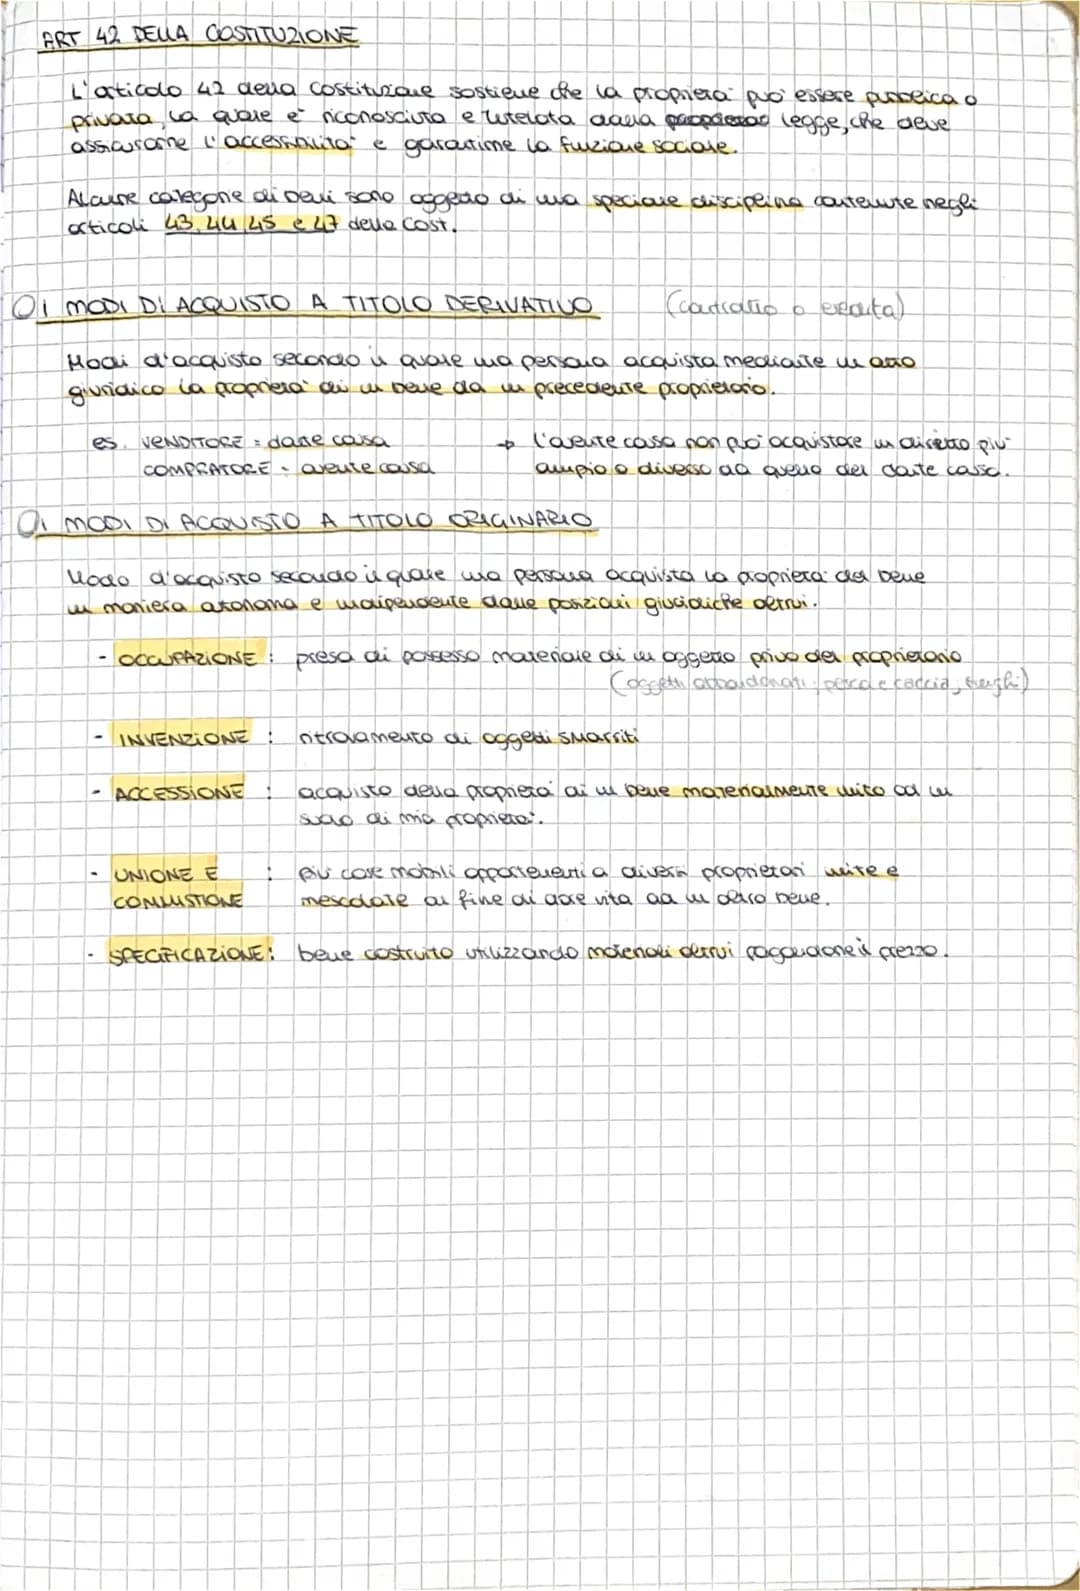 ART 42 DELLA COSTITUZIONE
L'articolo 42 della Costituzione sostiene che la proprietà può essere pubblica o
privata, la quale è riconosciuta e tutelata dalla legge, che deve
assicurarne l'accessibilità e garantirne la funzione sociale.
Alcune categorie di beni sono oggetto di una speciale disciplina contenute negli
articoli 43, 44, 45 e 47 della Cost.
I MODI DI ACQUISTO A TITOLO DERIVATIVO (contratto o eredità)
Modi d'acquisto secondo il quale una persona acquista mediante un atto
giuridico la proprietà di un bene da un precedente proprietario.
es. VENDITORE = dante causa → l'avente causa non può acquistare un diretto più
COMPRATORE = avente causa ampio o diverso da quello del dante causa.
I MODI DI ACQUISTO A TITOLO ORIGINARIO
Modo d'acquisto secondo il quale una persona acquista la proprietà del bene
in maniera autonoma e indipendente dalle posizioni giuridiche altrui.
- OCCUPAZIONE : presa di possesso materiale di un oggetto privo del proprietario
(oggetti abbandonati; pesca e caccia; funghi)
- INVENZIONE : ritrovamento di oggetti smarriti
- ACCESSIONE : acquisto della proprietà di un bene materialmente unito ad un
suolo di mia proprietà.
- UNIONE E : più cose mobili appartenenti a diversi proprietari unite e
COMMISTIONE mescolate al fine di dare vita ad un altro bene.
- SPECIFICAZIONE: bene costruito utilizzando materiali altrui pagandone il prezzo.